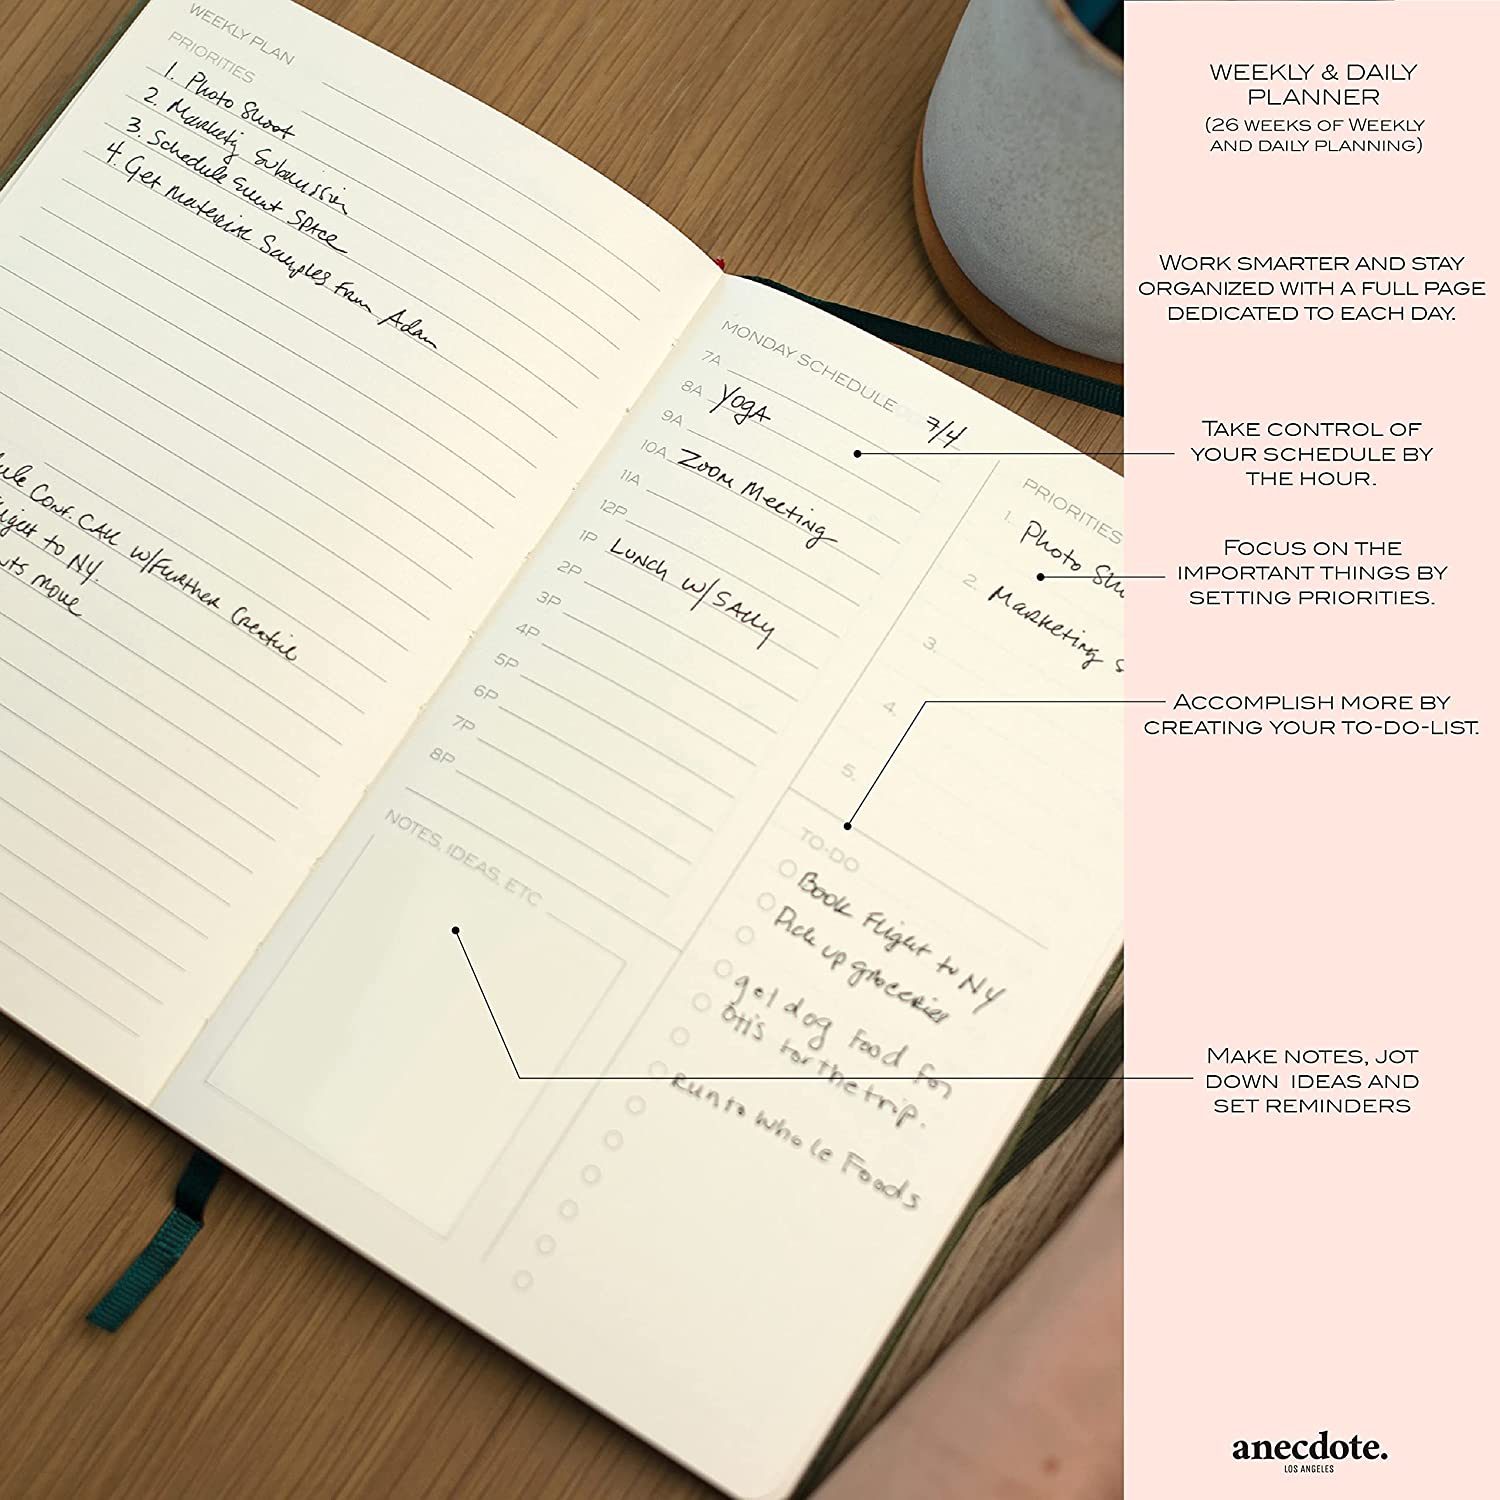 WEEKLY PLAN
PRIORITIES
1. Photo Shoot
2. Marketing Submission
3. Schedule event Space
4. Get material Samples from Adam
Conf. CALL w/Further Creative
to NY.
move
MONDAY SCHEDULE 7/4
7A
8A YOGA
9A
10A Zoom Meeting
11A
12P
1P LUNCH W/ SALLY
2P
3P
4P
5P
6P
7P
8P
NOTES, IDEAS, ETC
PRIORITIES
1. Photo
2. Marketing
3.
4.
5.
TO-DO
Book Flight to NY
Pick up groceries
get dog food for
Otis for the trip.
Run to Whole Foods
WEEKLY & DAILY
PLANNER
(26 WEEKS OF WEEKLY
AND DAILY PLANNING)
WORK SMARTER AND STAY
ORGANIZED WITH A FULL PAGE
DEDICATED TO EACH DAY.
TAKE CONTROL OF
YOUR SCHEDULE BY
THE HOUR.
FOCUS ON THE
IMPORTANT THINGS BY
SETTING PRIORITIES.
ACCOMPLISH MORE BY
CREATING YOUR TO-DO-LIST.
MAKE NOTES, JOT
DOWN IDEAS AND
SET REMINDERS
anecdote.
LOS ANGELES